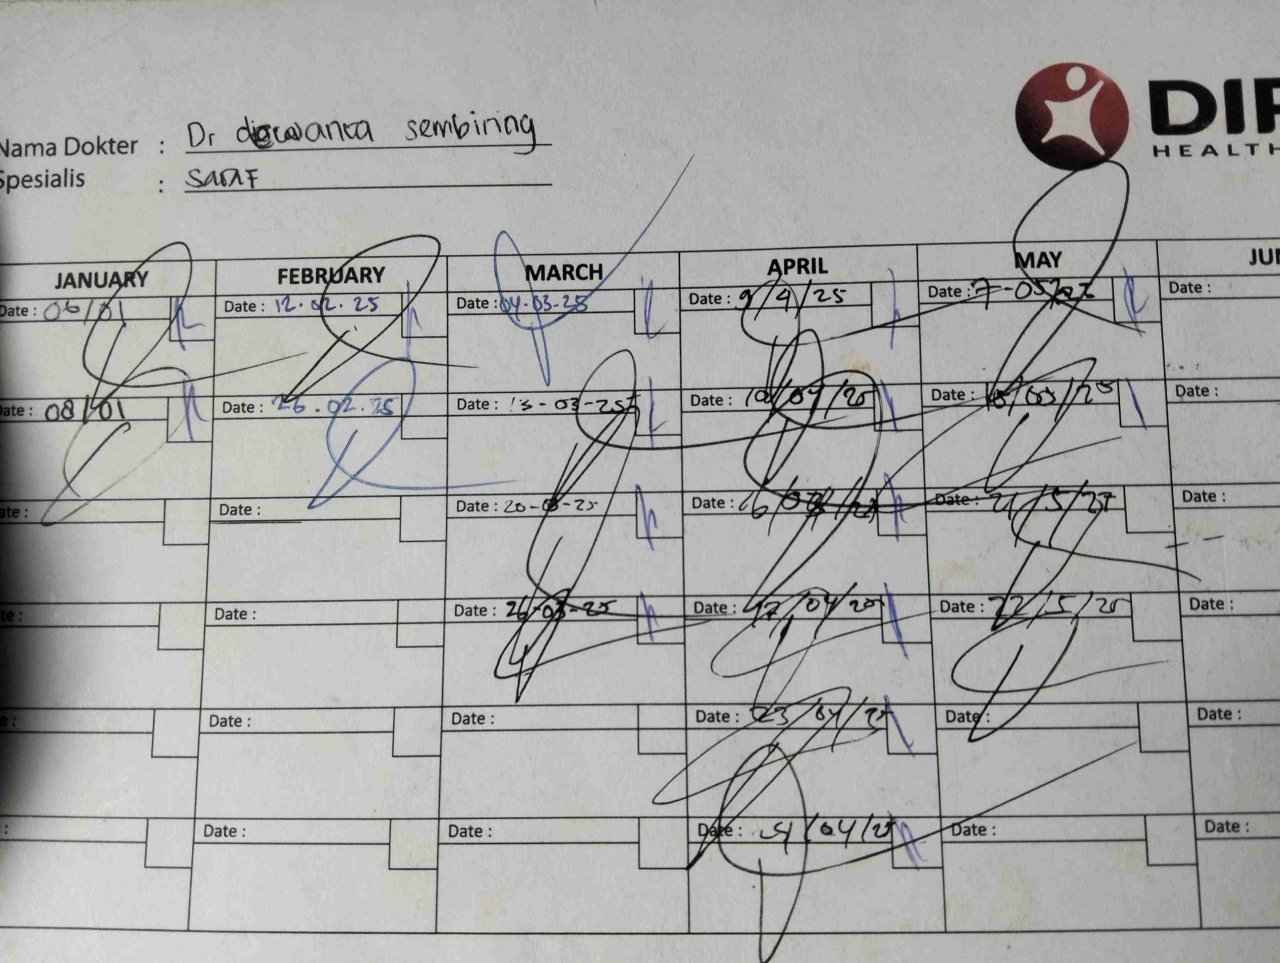 DIP
HEALTH
Nama Dokter : Dr dewanta sembiring
Spesialis : saraf
JANUARY FEBRUARY MARCH APRIL MAY JUN
Date : 06/01 Date : 12.02.25 Date : 04.03.25 Date : 9/4/25 Date : 7-05-25 Date :
Date : 08/01 Date : 26.02.25 Date : 13-03-25 Date : 10/04/25 Date : Date :
Date : Date : Date : 20-03-25 Date : 16/04/25 Date : 21/5/25 Date :
Date : Date : Date : 26-03-25 Date : 17/04/25 Date : 22/5/25 Date :
Date : Date : Date : Date : 23/04/25 Date : Date :
: Date : Date : Date : /04/25 Date : Date :